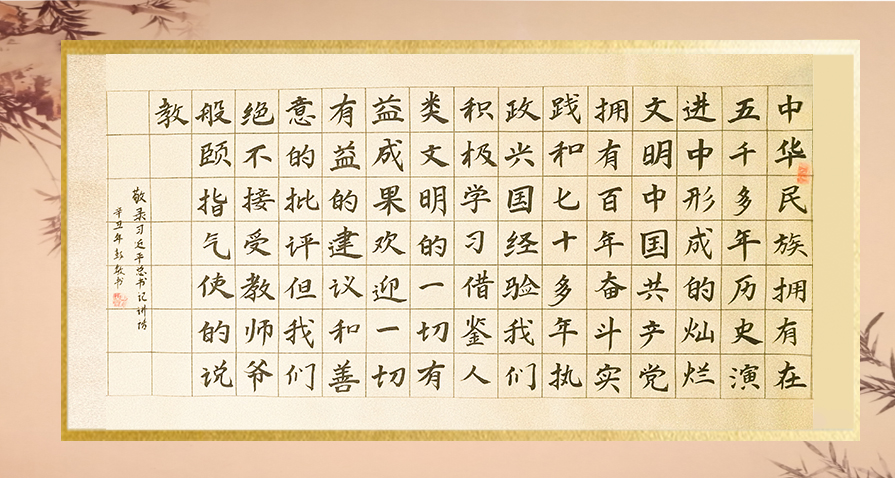 中华民族拥有在
五千多年历史演
进中形成的灿烂
文明中国共产党
拥有百年奋斗实
践和七十多年执
政兴国经验我们
积极学习借鉴人
类文明的一切有
益成果欢迎一切
有益的建议和善
意的批评但我们
绝不接受教师爷
般颐指气使的说
教
敬录习近平总书记讲话
辛丑年彭书